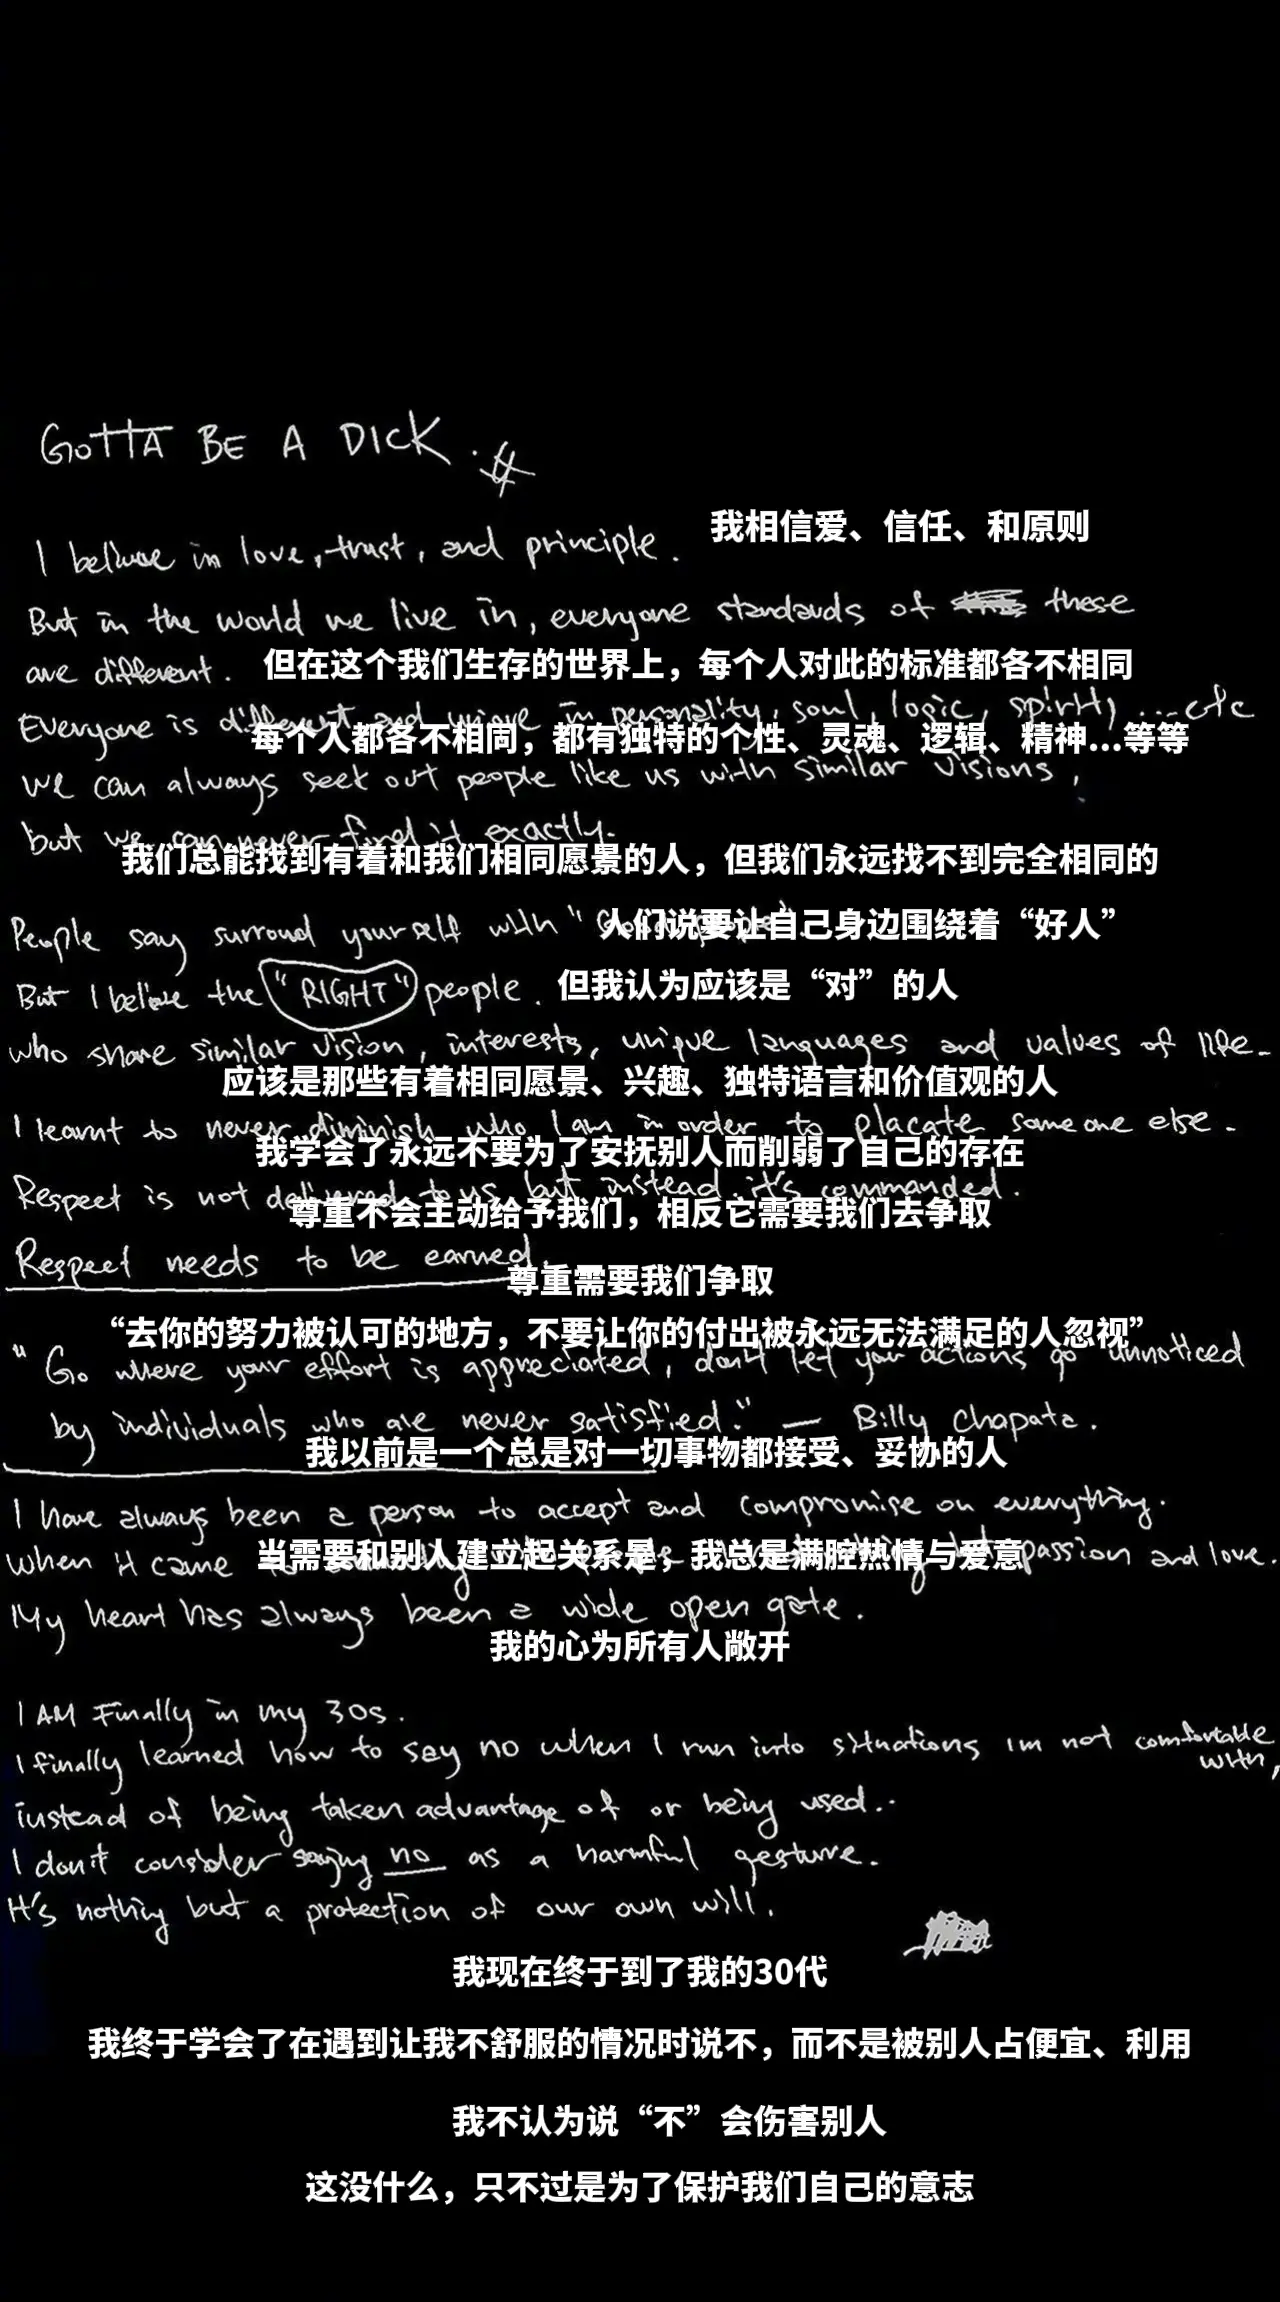 GOTTA BE A DICK.
I believe in love, trust, and principle.
我相信爱、信任、和原则
But in the world we live in, everyone standards of these
are different.
但在这个我们生存的世界上，每个人对此的标准都各不相同
Everyone is different and unique in personality, soul, logic, spirit, ...etc
每个人都各不相同，都有独特的个性、灵魂、逻辑、精神...等等
we can always seek out people like us with similar visions,
but we can never find it exactly.
我们总能找到有着和我们相同愿景的人，但我们永远找不到完全相同的
People say surround yourself with "Good people".
人们说要让自己身边围绕着“好人”
But I believe the "RIGHT" people.
但我认为应该是“对”的人
who share similar vision, interests, unique languages and values of life.
应该是那些有着相同愿景、兴趣、独特语言和价值观的人
I learnt to never diminish who I am in order to placate someone else.
我学会了永远不要为了安抚别人而削弱了自己的存在
Respect is not delivered to us but instead it's commanded.
尊重不会主动给予我们，相反它需要我们去争取
Respect needs to be earned.
尊重需要我们争取
“去你的努力被认可的地方，不要让你的付出被永远无法满足的人忽视”
"Go where your effort is appreciated, don't let your actions go unnoticed
by individuals who are never satisfied." — Billy Chapata.
我以前是一个总是对一切事物都接受、妥协的人
I have always been a person to accept and compromise on everything.
When it came to passion and love.
当需要和别人建立起关系是，我总是满腔热情与爱意
My heart has always been a wide open gate.
我的心为所有人敞开
I AM Finally in my 30s.
I finally learned how to say no when I run into situations im not comfortable
with,
instead of being taken advantage of or being used..
I don't consider saying no as a harmful gesture.
It's nothing but a protection of our own will.
我现在终于到了我的30代
我终于学会了在遇到让我不舒服的情况时说不，而不是被别人占便宜、利用
我不认为说“不”会伤害别人
这没什么，只不过是为了保护我们自己的意志